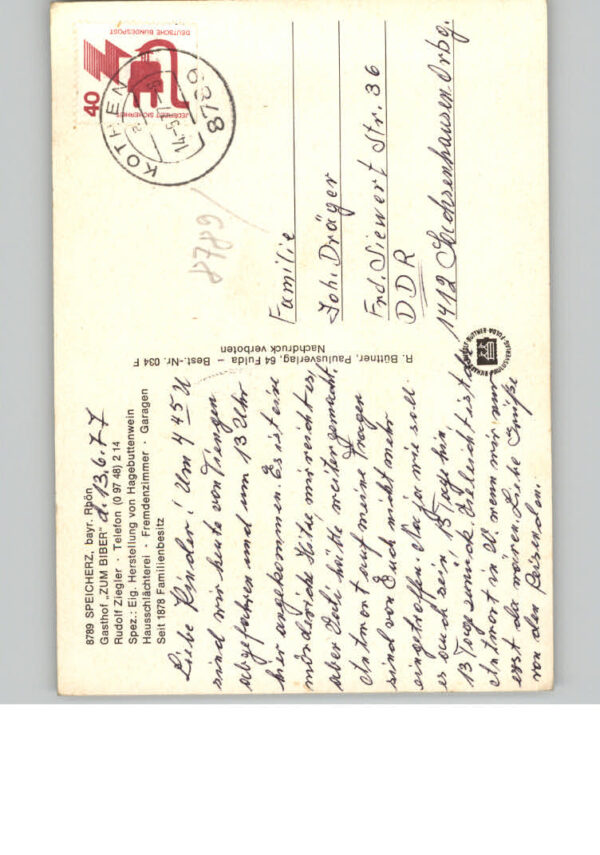 8789 SPEICHERZ, bayr. Rhön
Gasthof „ZUM BIBER"
Rudolf Ziegler · Telefon (0 97 48) 2 14
Spez.: Eig. Herstellung von Hagebuttenwein
Hausschlächterei · Fremdenzimmer · Garagen
Seit 1878 Familienbesitz
d. 13.6.77
Liebe Kinder! Um 4 45 U
sind wir heute von Tiengen
abgefahren und um 13 Uhr
hier angekommen. Es ist eine
mörderische Hitze, mir reicht es,
aber Vati hätte weiter gemacht.
Antwort auf meine Fragen
sind von Euch nicht mehr
eingetroffen. Na ja wie soll
es auch sein 13 Tage hin
13 Tage zurück. Vielleicht ist die
Antwort in W. wenn wir nur
erst da wären. Liebe Grüße
von den Reisenden.
R. Büttner, Paulusverlag, 64 Fulda – Best.-Nr. 034 F
Nachdruck verboten
DEUTSCHE BUNDESPOST
JEDERZEIT SICHERHEIT
40
KOTHEN
8789
8789
Familie
Joh. Dräger
Frd. Siewert Str. 36
DDR
1412 Sachsenhausen Orbg.